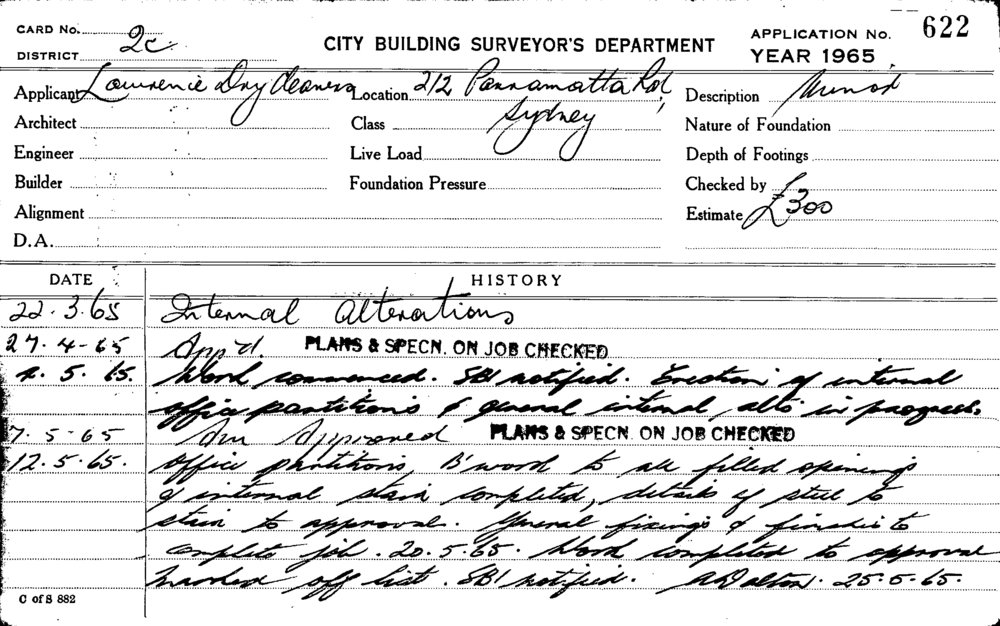 CARD No. 2c
DISTRICT
CITY BUILDING SURVEYOR'S DEPARTMENT
APPLICATION No. 622
YEAR 1965
Applicant Lawrence Dry Cleaners
Location 212 Parramatta Rd, Sydney
Description Minor
Architect
Class
Nature of Foundation
Engineer
Live Load
Depth of Footings
Builder
Foundation Pressure
Checked by
Alignment
Estimate £300
D.A.
DATE HISTORY
22.3.65 Internal alterations
27.4-65 App'd. PLANS & SPECN. ON JOB CHECKED
5.65. Work commenced. SBI notified. Erection of internal
office partitions & general internal alts in progress.
7-5-65 Am Approved PLANS & SPECN. ON JOB CHECKED
12.5.65. Office partitions, B'work to all filled openings
& internal stair completed, details of steel to
stair to approval. General fixings & finishes to
complete job. 20.5.65. Work completed to approval
marked off list. SBI notified. A Dalton. 25.5.65.
C of S 882